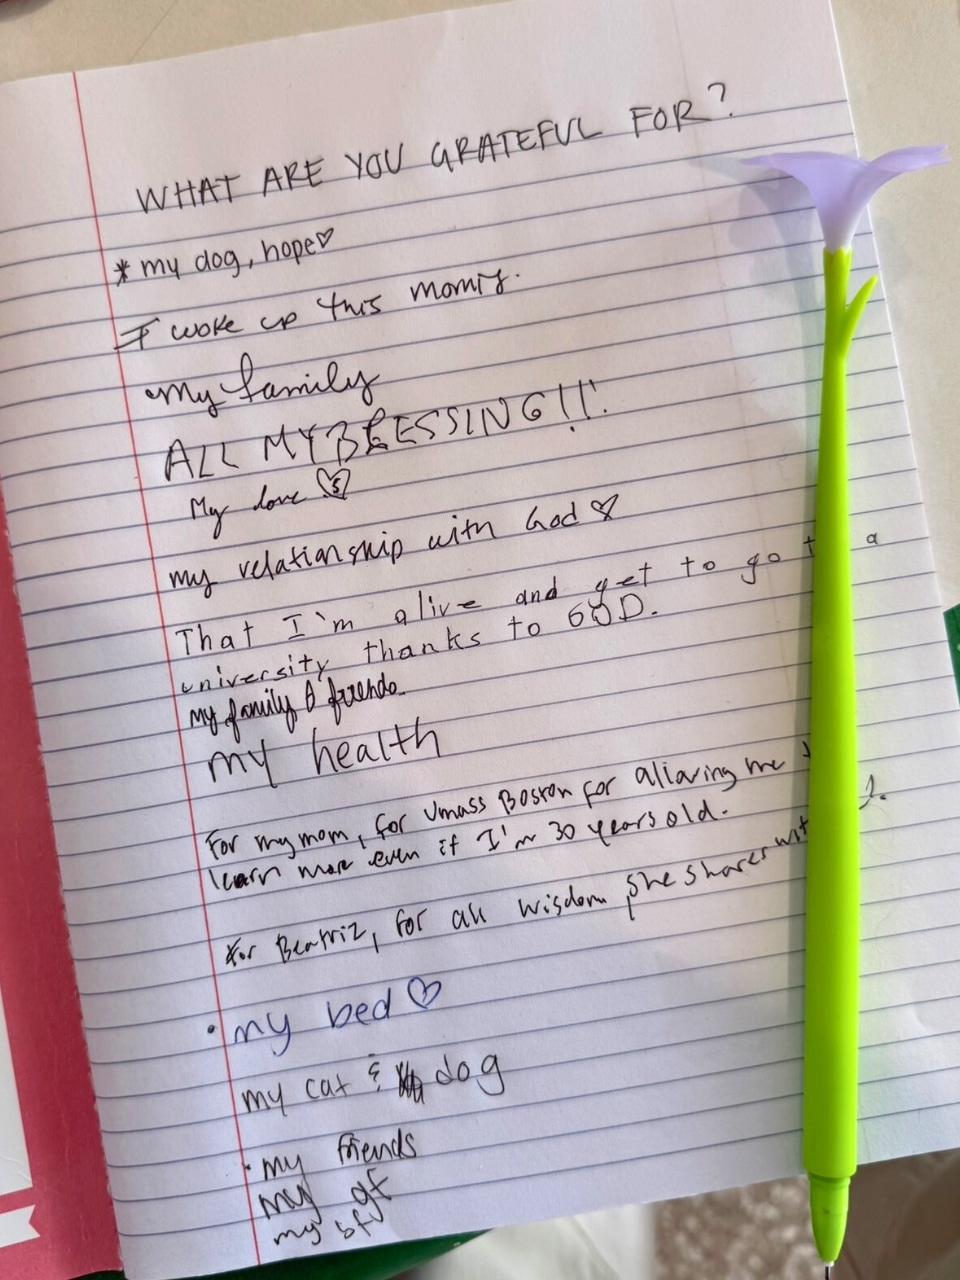 WHAT ARE YOU GRATEFUL FOR?
* my dog, hope♡
I woke up this morning.
my family
ALL MY BLESSING!!!
My love
my relationship with God ♡
That I'm alive and get to go to a
university thanks to GOD.
my family & friends
my health
For my mom, for Umass Boston for allowing me
learn more even if I'm 30 years old.
For Beatriz, for all wisdom she shares with
• my bed ♡
my cat & dog
• my friends
my gf
my bf